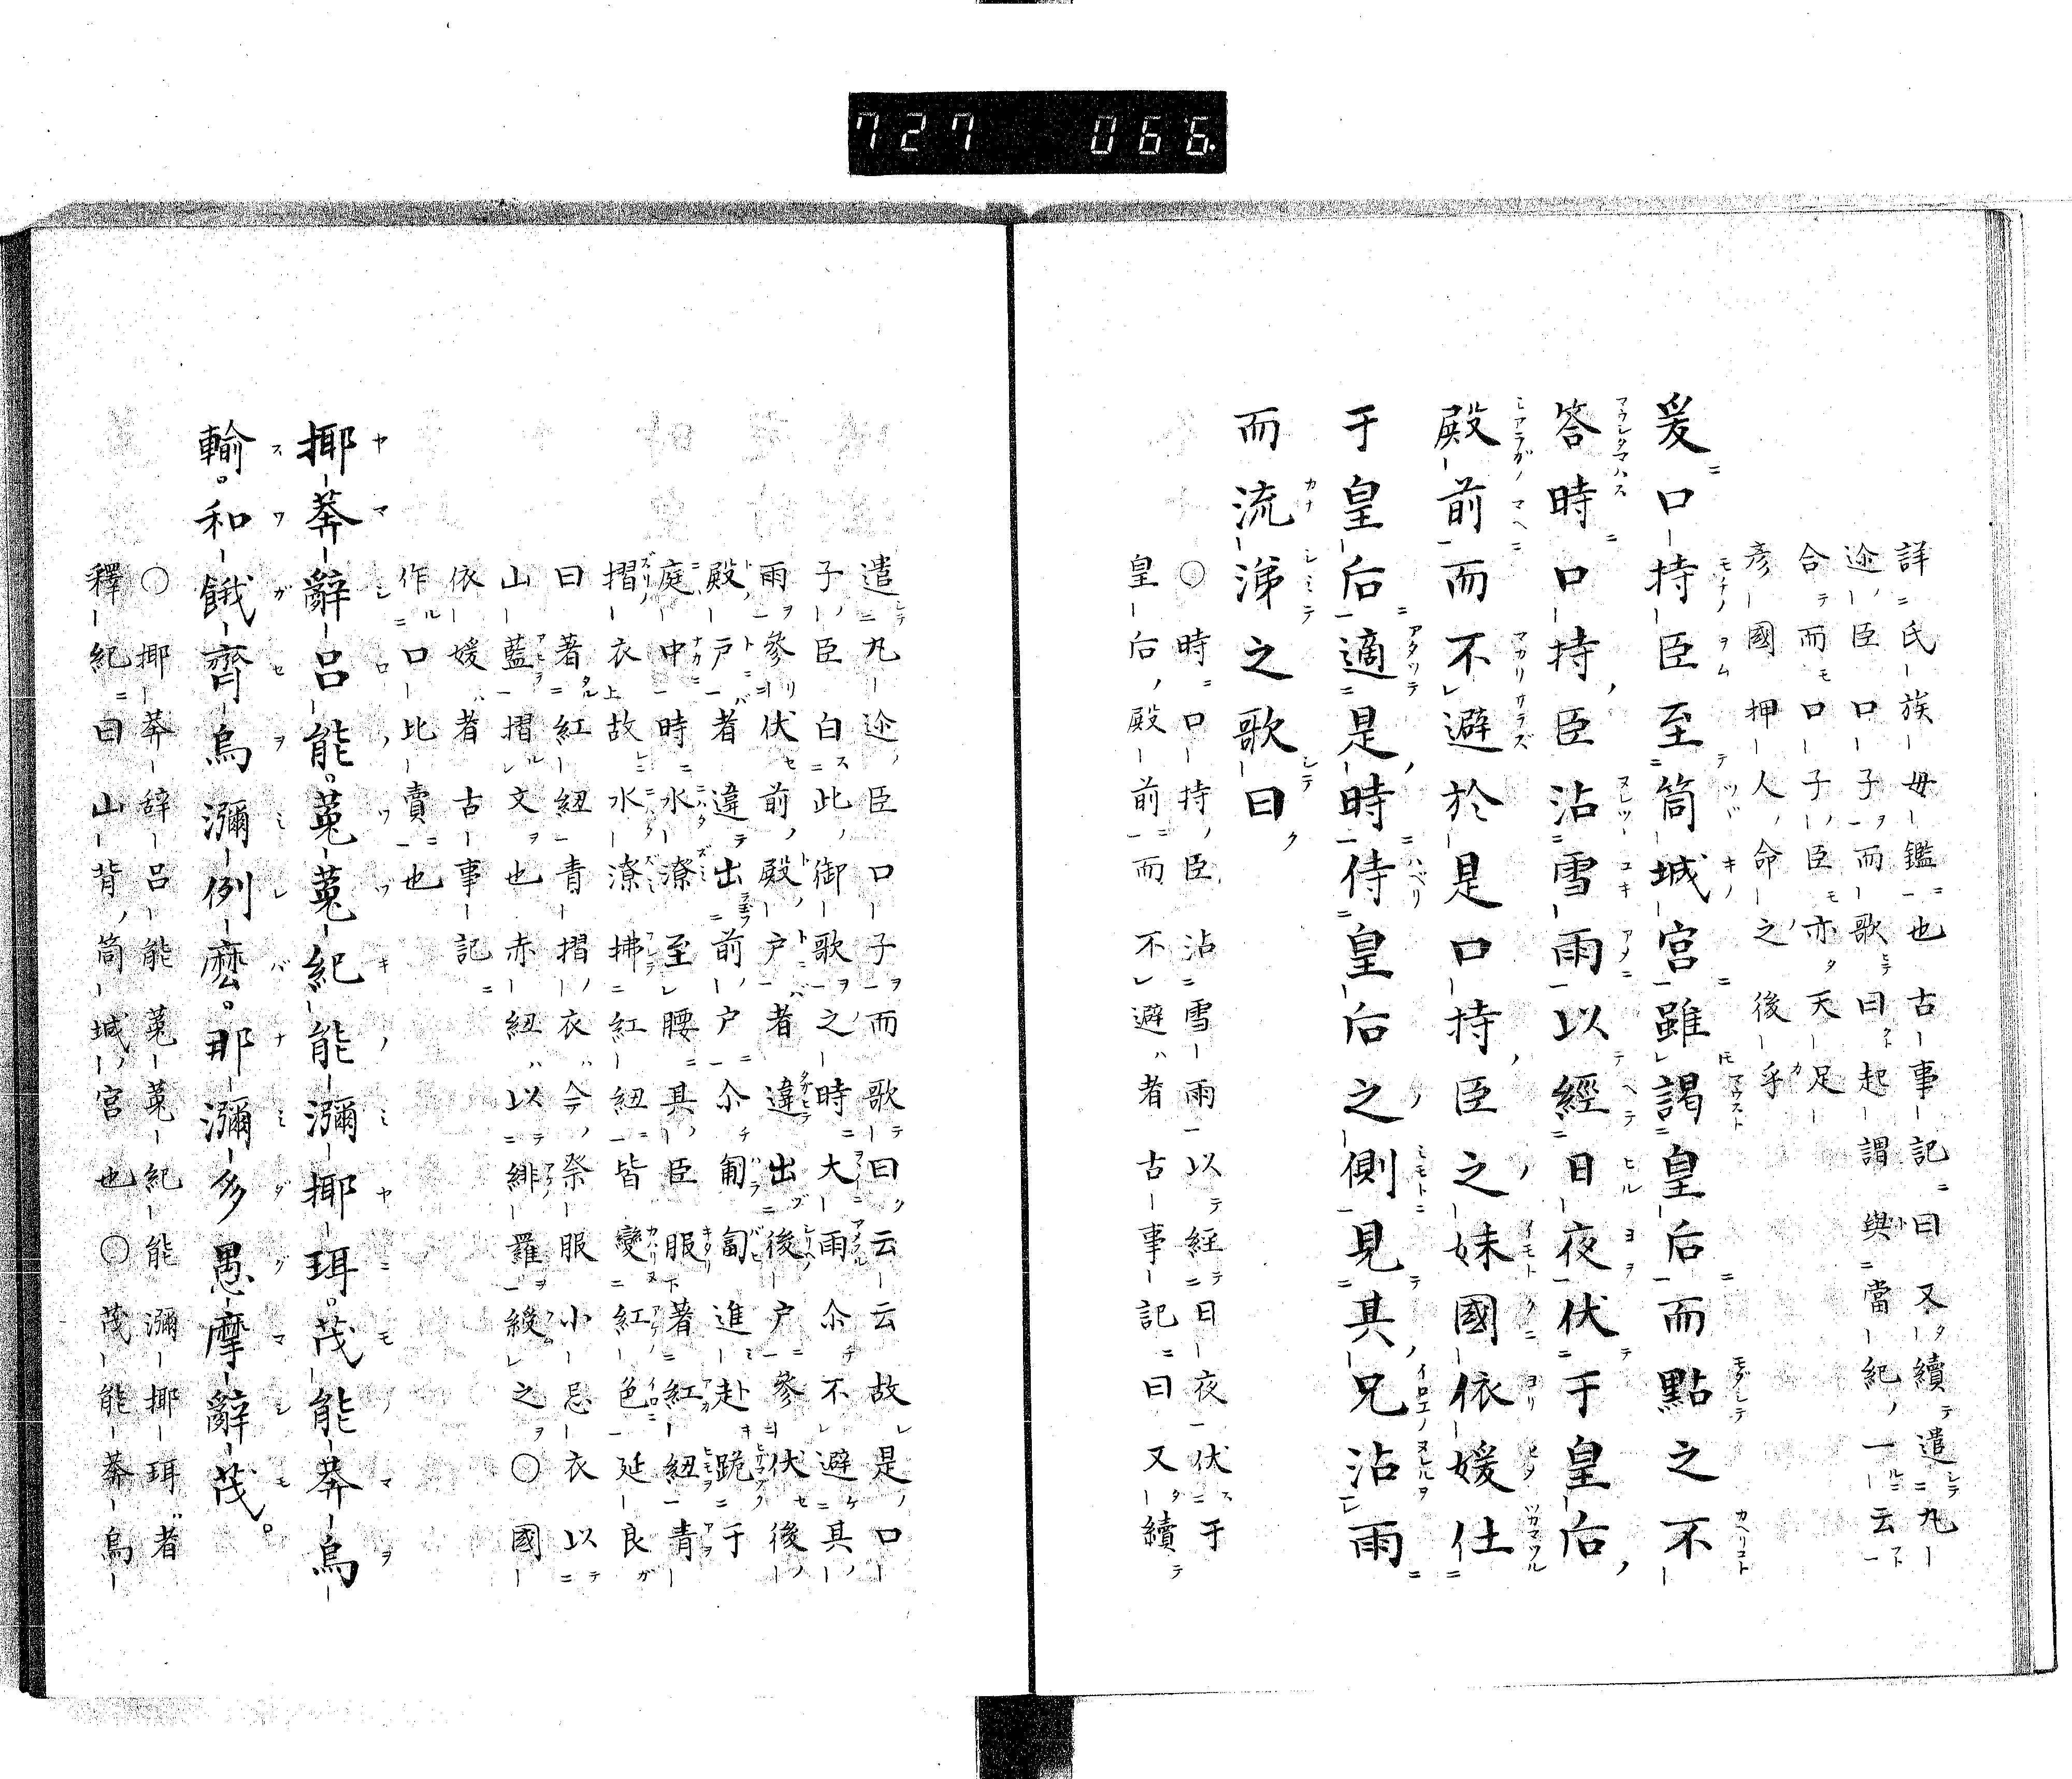 727 066.
詳氏族母鑑也古事記曰又續遣丸
迩臣口子而歌曰起謂與當紀一云
合而口子臣亦天足
彦國押人命之後乎
爰口持臣至筒城宮雖謁皇后而點之不
答時口持臣沾雪雨以經日夜伏于皇后
殿前而不避於是口持臣之妹國依媛仕
于皇后適是時侍皇后之側見其兄沾雨
而流涕之歌曰
○時口持臣沾雪雨以経日夜伏于
皇后殿前而不避者古事記曰又續
遣丸迩臣口子而歌曰云云故是口
子臣白此御歌之時大雨尒不避其
雨參伏前殿戸者違出後戸參伏後
殿戸者違出前戸尒匍匐進赴跪于
庭中時水潦至腰其臣服著紅紐青
摺衣故水潦拂紅紐皆變紅色延良
曰著紅紐青摺衣今祭服小忌衣以
山藍摺文也赤紐以緋羅綬之○國
依媛者古事記
作口比賣也
揶莽辭呂能菟菟紀能瀰揶珥茂能莽烏
輸和餓齊烏瀰例麼那瀰多愚摩辭茂
○揶莽辞呂能菟菟紀能瀰揶珥者
釋紀曰山背筒城宮也○茂能莽烏